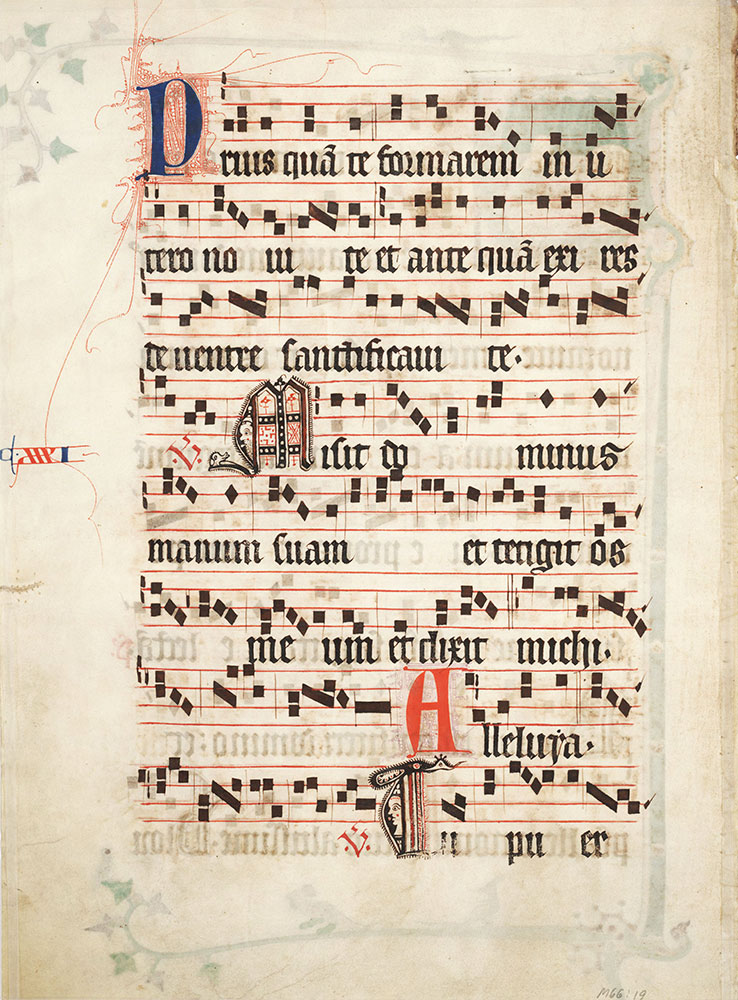 Prius quã te formarem in u
tero no ui te et ante quã exi res
de uentre sanctificaui te.
V. Misit do minus
manum suam et tetigit os
me um et dixit michi.
Alleluya.
V. Tu pu er
M66:19